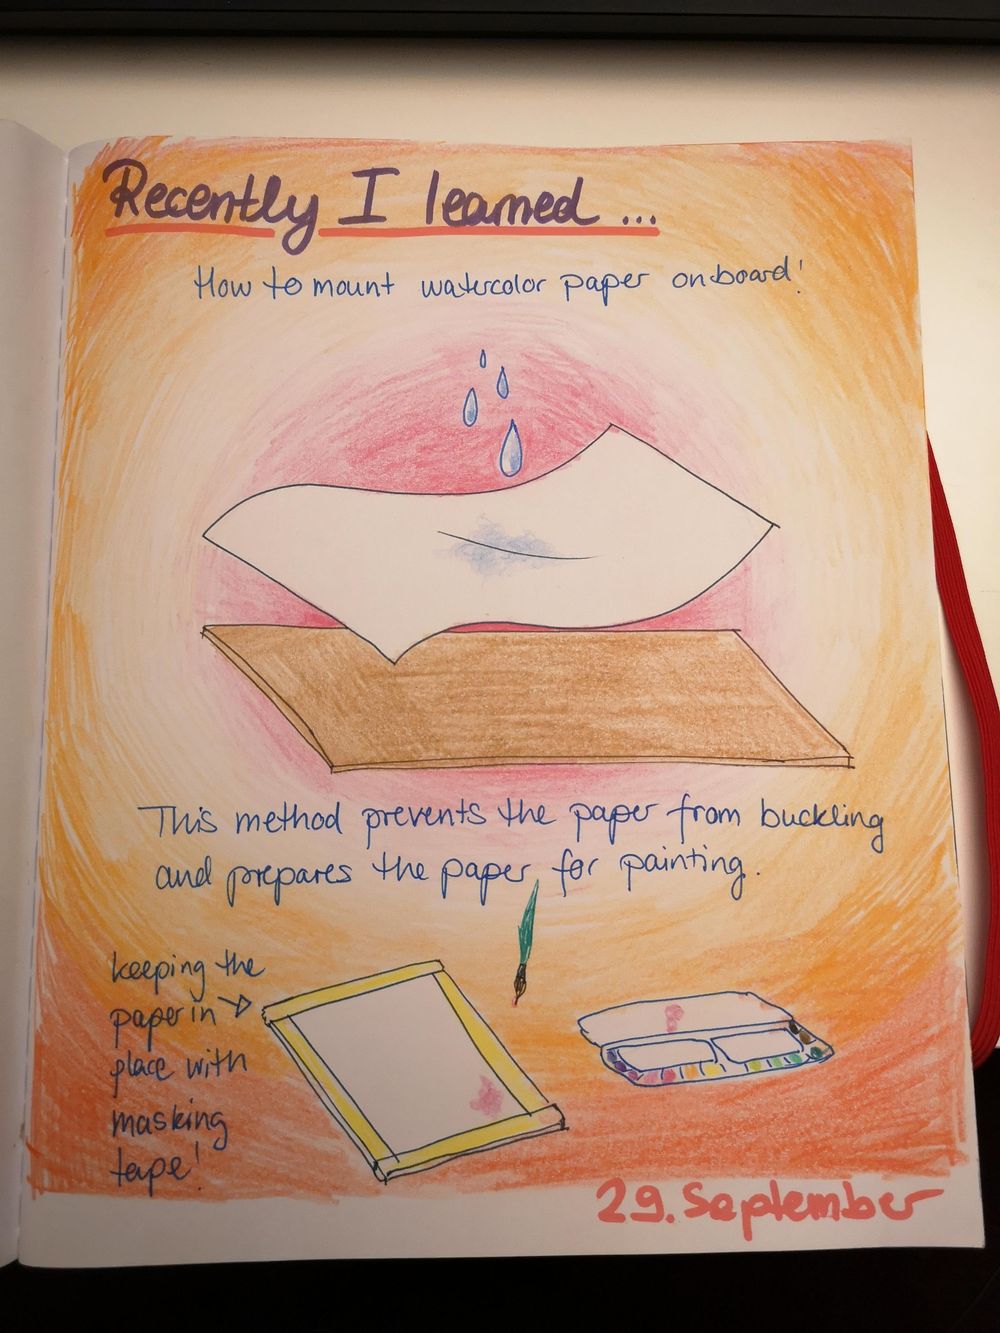 Recently I learned ...
How to mount watercolor paper on board!
This method prevents the paper from buckling
and prepares the paper for painting.
keeping the
paper in
place with
masking
tape!
29. September